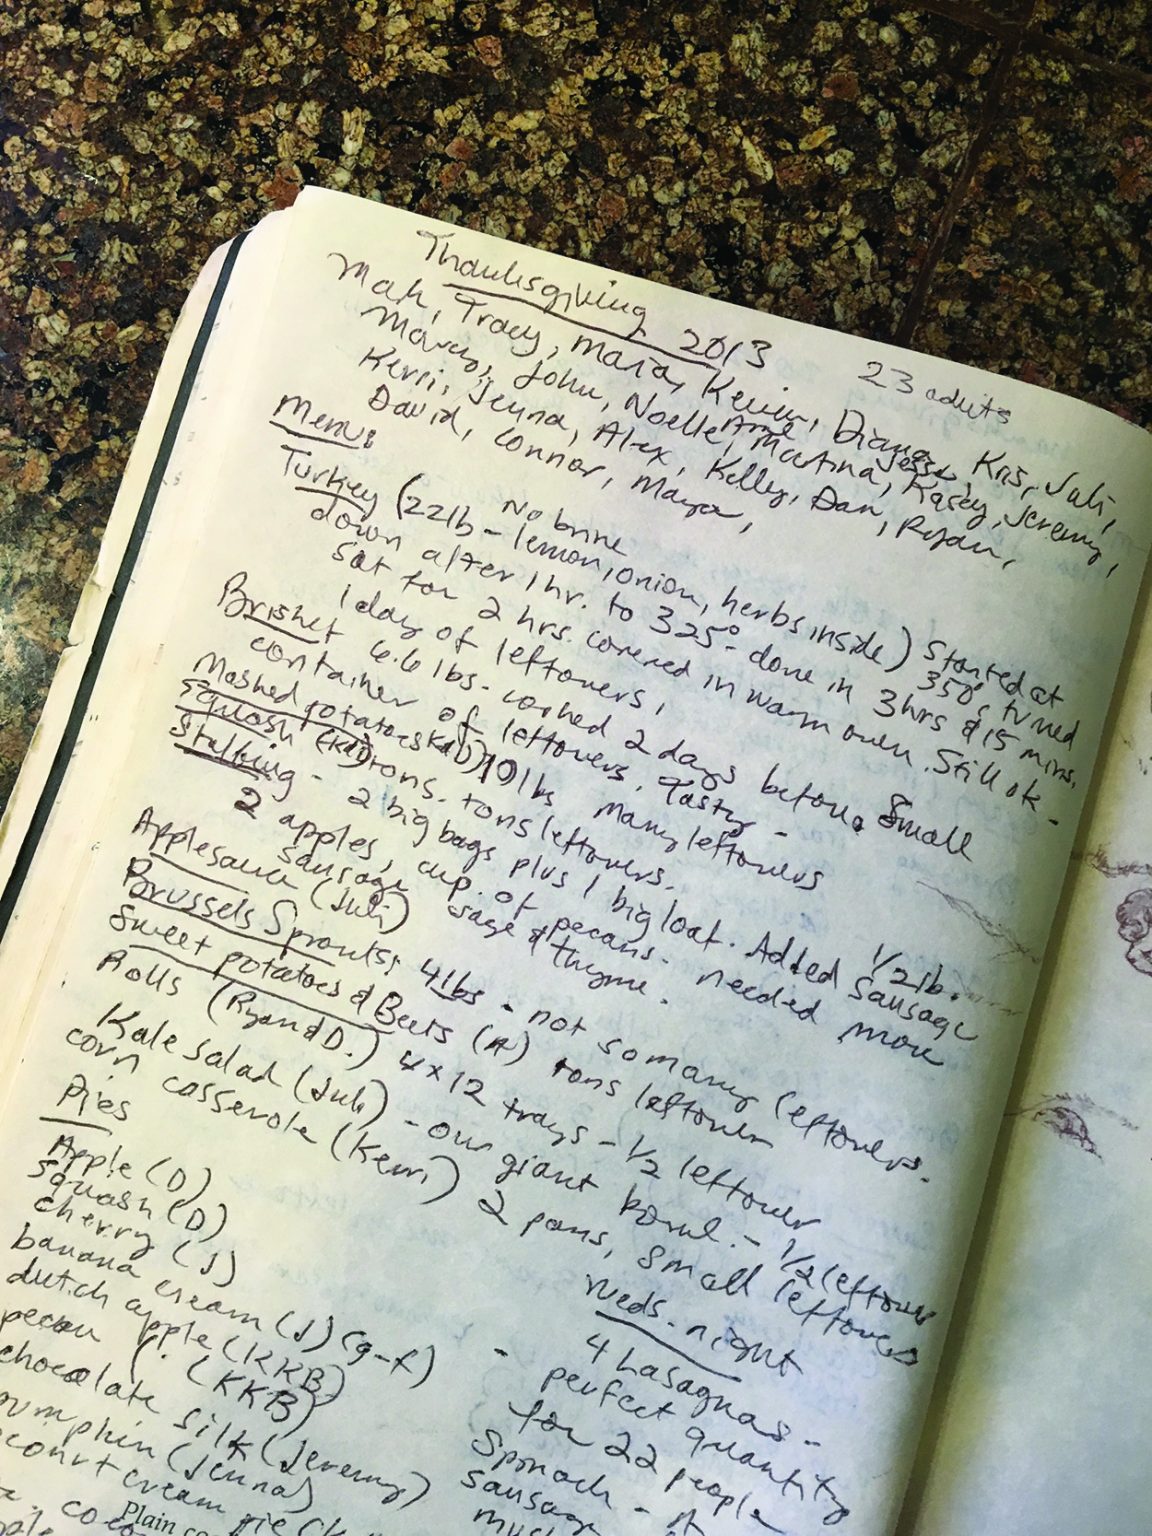 Thanksgiving 2013 23 adults
Matt, Tracy, Maria, Kevin, Diane, Kris, Juli,
Marco, John, Noelle, Martina, Jesse, Kasey, Jeremy,
Kerri, Jenna, Alex, Kelly, Dan, Ryan,
David, Connor, Maya,
Menu:
No brine
Turkey (22lb - lemon, onion, herbs inside) Started at
350°, turned
down after 1hr. to 325° - done in 3hrs & 15 mins.
Sat for 2 hrs. covered in warm oven. Still ok -
1 day of leftovers.
Brisket 6.6 lbs. cooked 2 days before. Small
container of leftovers. Tasty -
Mashed potatoes (K&D) 10 lbs many leftovers
Squash (K&D) tons. tons leftovers.
Stuffing - 2 big bags plus 1 big loaf. Added 1/2 lb.
sausage
2 apples, cup of pecans. needed more
sausage sage & thyme.
Applesauce (Juli)
Brussels Sprouts: 4lbs - not so many leftovers.
Sweet potatoes & Beets (A) tons leftover
Rolls (Ryan & D.) 4 x 12 trays - 1/2 leftover
Kale salad (Juli) - our giant bowl. - 1/2 leftover
corn casserole (Kerri) 2 pans, small leftovers
Pies
Apple (D)
squash (D)
cherry (J)
banana cream (J) (g-f)
dutch apple (KKB)
pecan (KKB)
chocolate silk (Jeremy)
pumpkin (Jenna)
cream pie
Plain
Weds. night
4 Lasagnas -
perfect quantity
for 22 people
Spinach -
sausage